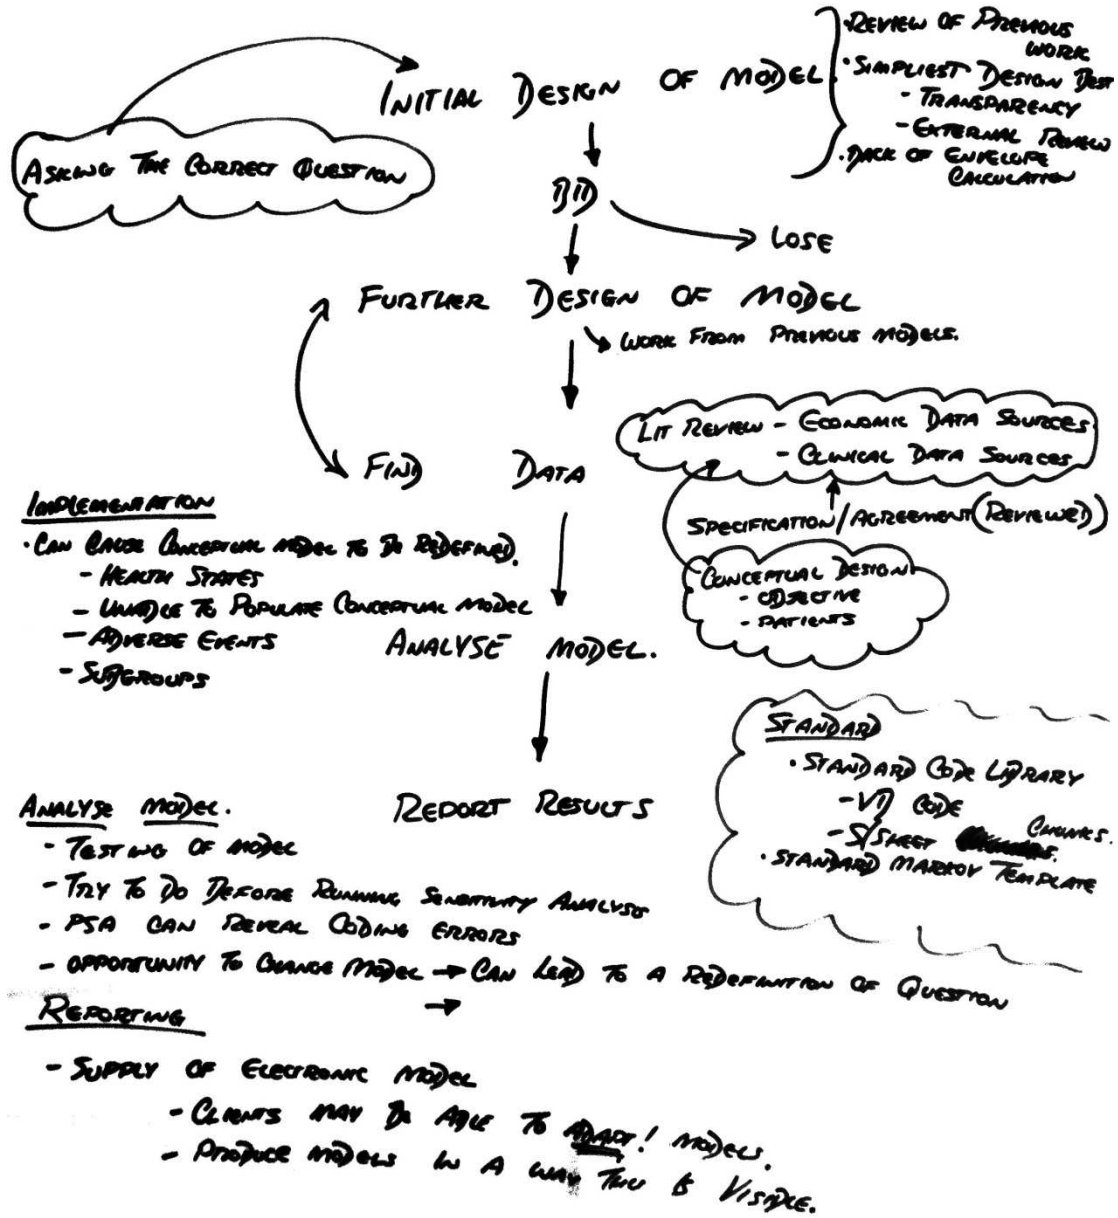 • REVIEW OF PREVIOUS
WORK
• SIMPLIEST DESIGN BEST
- TRANSPARENCY
- EXTERNAL REVIEW
• BACK OF ENVELOPE
CALCULATION
INITIAL DESIGN OF MODEL
ASKING THE CORRECT QUESTION
BID
LOSE
FURTHER DESIGN OF MODEL
WORK FROM PREVIOUS MODELS.
LIT REVIEW - ECONOMIC DATA SOURCES
- CLINICAL DATA SOURCES
FIND DATA
SPECIFICATION/AGREEMENT (REVIEWED)
CONCEPTUAL DESIGN
- OBJECTIVE
- PATIENTS
IMPLEMENTATION
• CAN CAUSE CONCEPTUAL MODEL TO BE REDEFINED.
- HEALTH STATES
- UNABLE TO POPULATE CONCEPTUAL MODEL
- ADVERSE EVENTS
- SUBGROUPS
ANALYSE MODEL.
STANDARD
• STANDARD CODE LIBRARY
- VB CODE
- S/SHEET CHUNKS.
• STANDARD MARKOV TEMPLATE
REPORT RESULTS
ANALYSE MODEL.
- TESTING OF MODEL
- TRY TO DO BEFORE RUNNING SENSITIVITY ANALYSIS
- PSA CAN REVEAL CODING ERRORS
- OPPORTUNITY TO CHANGE MODEL → CAN LEAD TO A REDEFINITION OF QUESTION
→
REPORTING
- SUPPLY OF ELECTRONIC MODEL
- CLIENTS MAY BE ABLE TO ADAPT! MODELS.
- PRODUCE MODELS IN A WAY THIS IS VISIBLE.